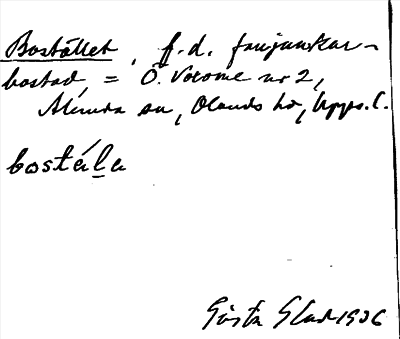 Bostället, f.d. fanjunkar-
bostad, = Ö. Vocome nr 2,
Almunge sn, Olands hd, Upps. l.
bostä́lle
Gösta Glad 1936